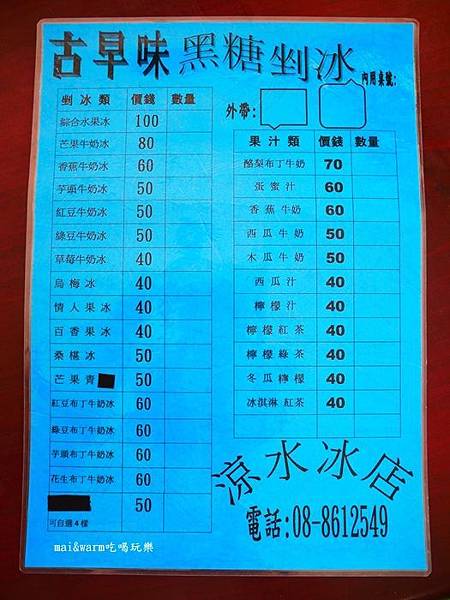 古早味黑糖剉冰
內用桌號:
外帶:
剉冰類 價錢 數量
綜合水果冰 100
芒果牛奶冰 80
香蕉牛奶冰 60
芋頭牛奶冰 50
紅豆牛奶冰 50
綠豆牛奶冰 50
草莓牛奶冰 40
烏梅冰 40
情人果冰 40
百香果冰 40
桑椹冰 50
芒果青 50
紅豆布丁牛奶冰 60
綠豆布丁牛奶冰 60
芋頭布丁牛奶冰 60
花生布丁牛奶冰 60
50
可自選4樣
果汁類 價錢 數量
酪梨布丁牛奶 70
蛋蜜汁 60
香蕉牛奶 60
西瓜牛奶 50
木瓜牛奶 50
西瓜汁 40
檸檬汁 40
檸檬紅茶 40
檸檬綠茶 40
冬瓜檸檬 40
冰淇淋紅茶 40
涼水冰店
電話:08-8612549
mai&warm吃喝玩樂